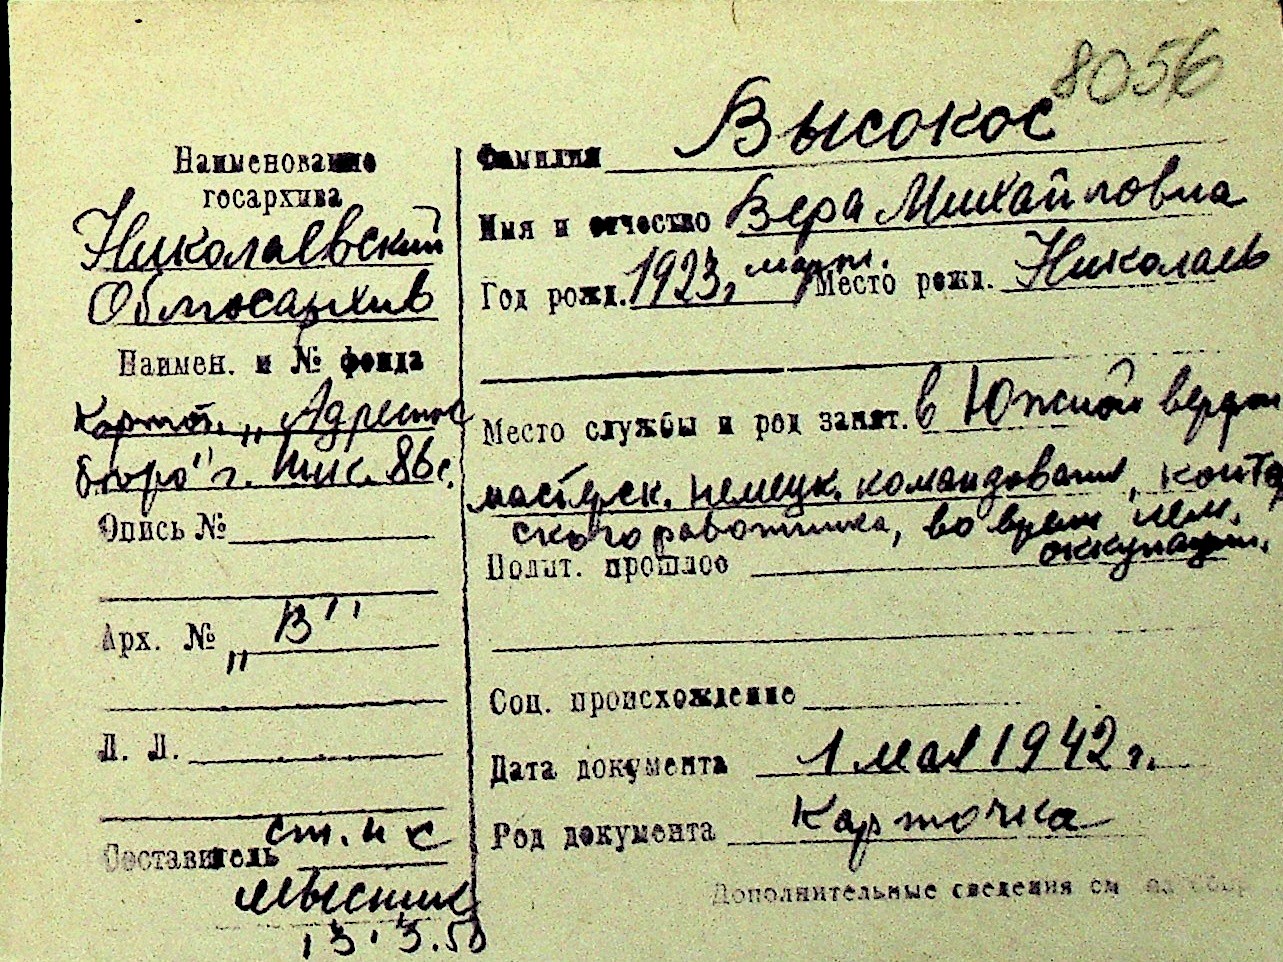 8056
Наименование
госархива
Николаевский
Облгосархив
Наимен. и № фонда
Картот. „Адресное
бюро" г. Ник. 86с.
Опись №
Арх. № „В"
Л. Л.
ст. н с
Составитель
13.3.50
Фамилия Высокос
Имя и отчество Вера Михайловна
Год рожд. 1923, март. Место рожд. Николаев
Место службы и род занят. в Южной верфи
мастерск. немецк. командования, контор
ского работника, во время нем.
оккупации.
Полит. прошлое
Соц. происхождение
Дата документа 1 мая 1942 г.
Род документа Карточка
Дополнительные сведения см